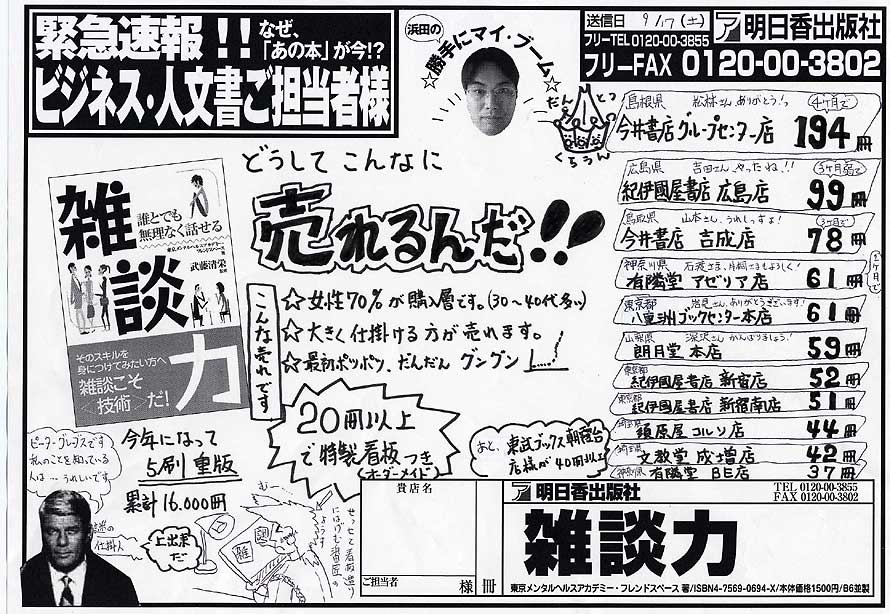 緊急速報!!
なぜ、
「あの本」が今!?
ビジネス・人文書ご担当者様
浜田の
☆勝手にマイ・ブーム☆
送信日 9/17(土)
ア 明日香出版社
フリーTEL 0120-00-3855
フリーFAX 0120-00-3802
だんとつ
くらうん
島根県 松林さんありがとう!っ 4ヶ月で
今井書店グループセンター店 194冊
広島県 吉田さんやったね!!
紀伊國屋書店 広島店 99冊
鳥取県 山本さん、うれしっすよ! 3ヶ月で
今井書店 吉成店 78冊
神奈川県
有隣堂 アゼリア店 61冊
東京都 さん、ありがとうございます!
八重洲ブックセンター本店 61冊
山梨県 深沢さん がんばりましょう!
朗月堂 本店 59冊
東京都
紀伊國屋書店 新宿店 52冊
東京都
紀伊國屋書店 新宿南店 51冊
埼玉県
須原屋コルソ店 44冊
文教堂 成増店 42冊
神奈川県
有隣堂 BE店 37冊
どうして こんなに
売れるんだ!!
雑談力
誰とでも
無理なく話せる
東京メンタルヘルスアカデミー・
フレンドスペース 著
武藤清栄 監修
そのスキルを
身につけてみたい方へ
雑談こそ
〈技術〉だ!
こんな売れです
☆女性70%が購入層です。(30〜40代多い)
☆大きく仕掛ける方が売れます。
☆最初ポツポツ、だんだん グングン
20冊以上
で特製看板つき
(オーダーメイド)
あと、東武ブックス朝霞台
店様が40冊以上
ピーター・グレイブスです
私のことを知っている
人は…うれしいです。
今年になって
5刷重版
累計16.000冊
謎の
仕掛人
上出来
だ
むー
せっせと看板造り
にはげむ
貴店名
ご担当者
様
冊
ア 明日香出版社
TEL 0120-00-3855
FAX 0120-00-3802
雑談力
東京メンタルヘルスアカデミー・フレンドスペース 著/ISBN4-7569-0694-X/本体価格1500円/B6並製